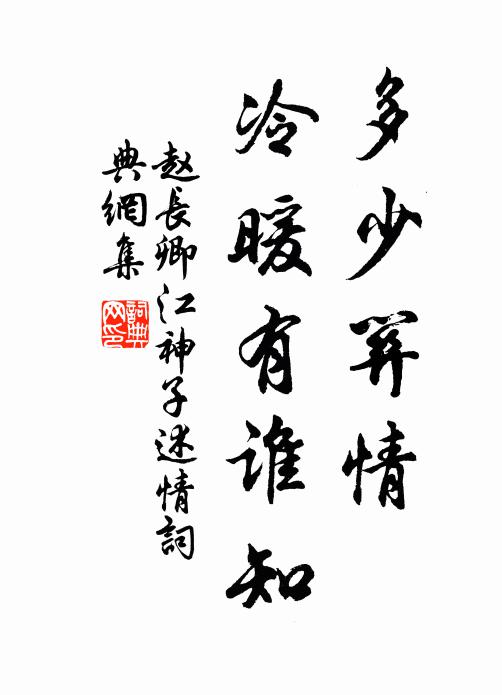 多少關情
冷暖有誰知
赵長卿江神子述情詞
典網集
詞典
网印